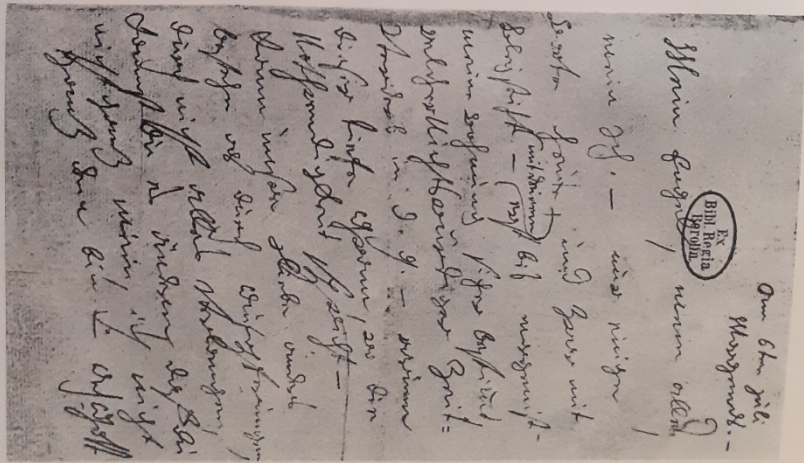 Am 6ten Juli
Morgends. –
Ex
Bibl. Regia
Berolin.
Mein Engel, mein alles,
mein Ich. – nur einige
Worte heute, und zwar mit
Bleystift – (mit deinem)
erst bis morgen ist
meine Wohnung sicher bestimmt,
welcher Nichtswürdiger Zeit-
verderb in d. g. – warum
dieser tiefe Gram, wo die
Nothwendigkeit spricht –
Kann unsre Liebe anders
bestehn als durch Aufopferungen,
durch nicht alles verlangen,
kannst du es ändern, daß du
nicht ganz mein, ich nicht
ganz dein bin – Ach Gott